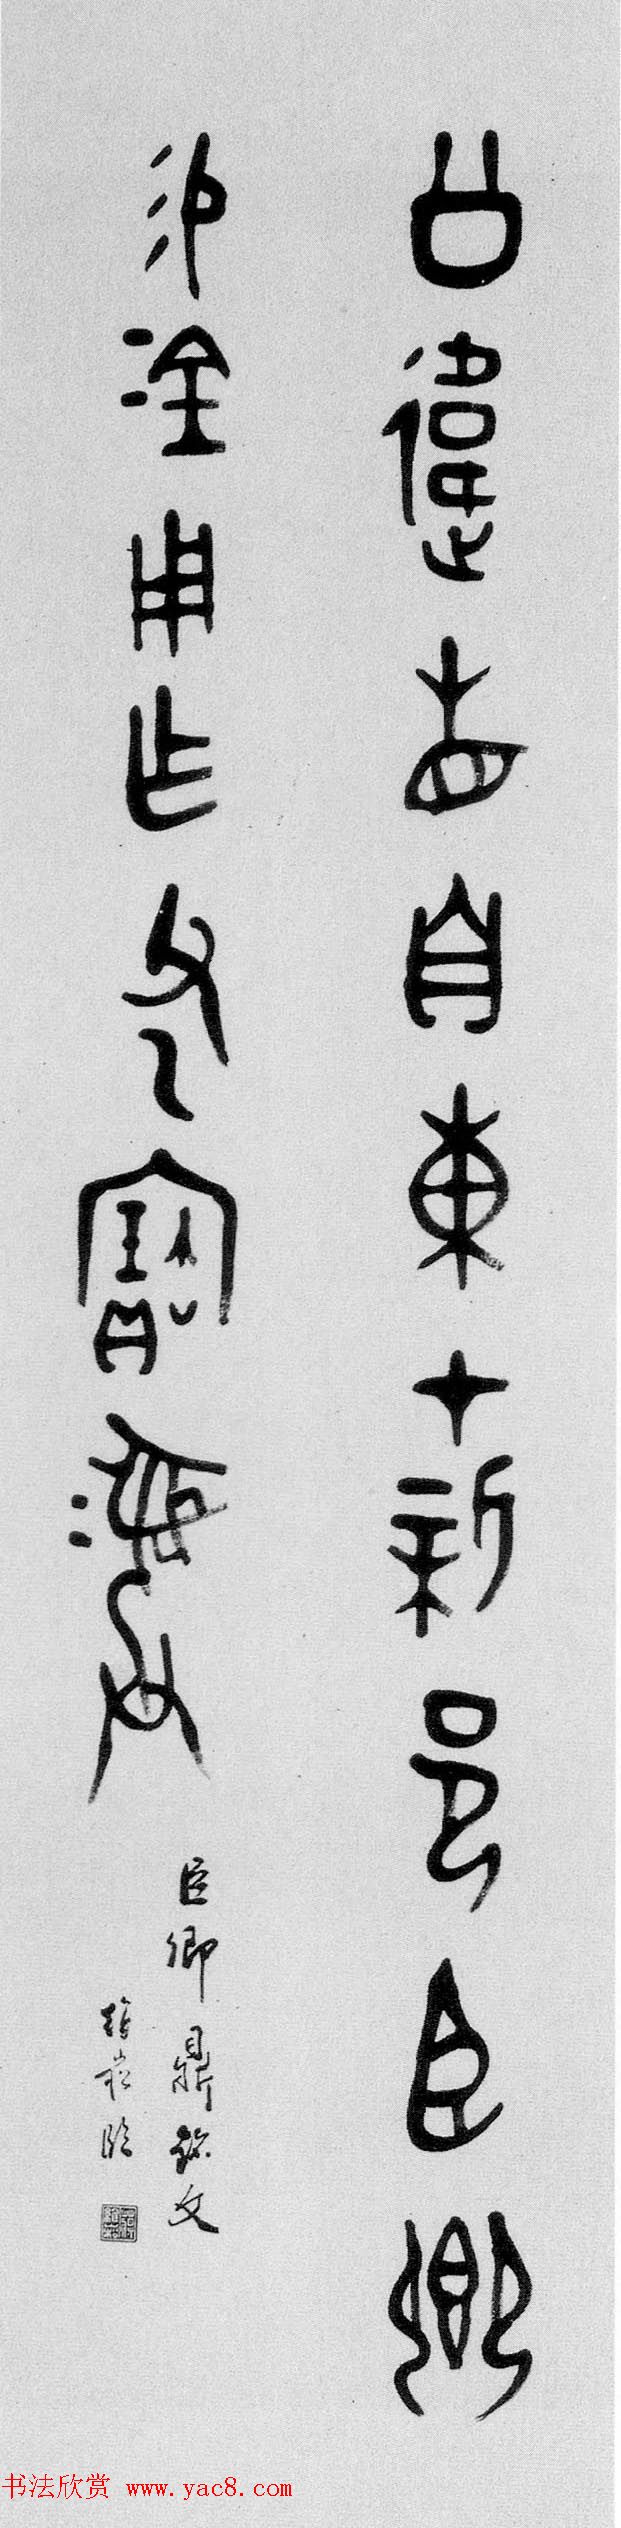 公違省自東才新邑臣卿
易金用作父乙寶彝
臣卿鼎銘文
臨
书法欣赏 www.yac8.com